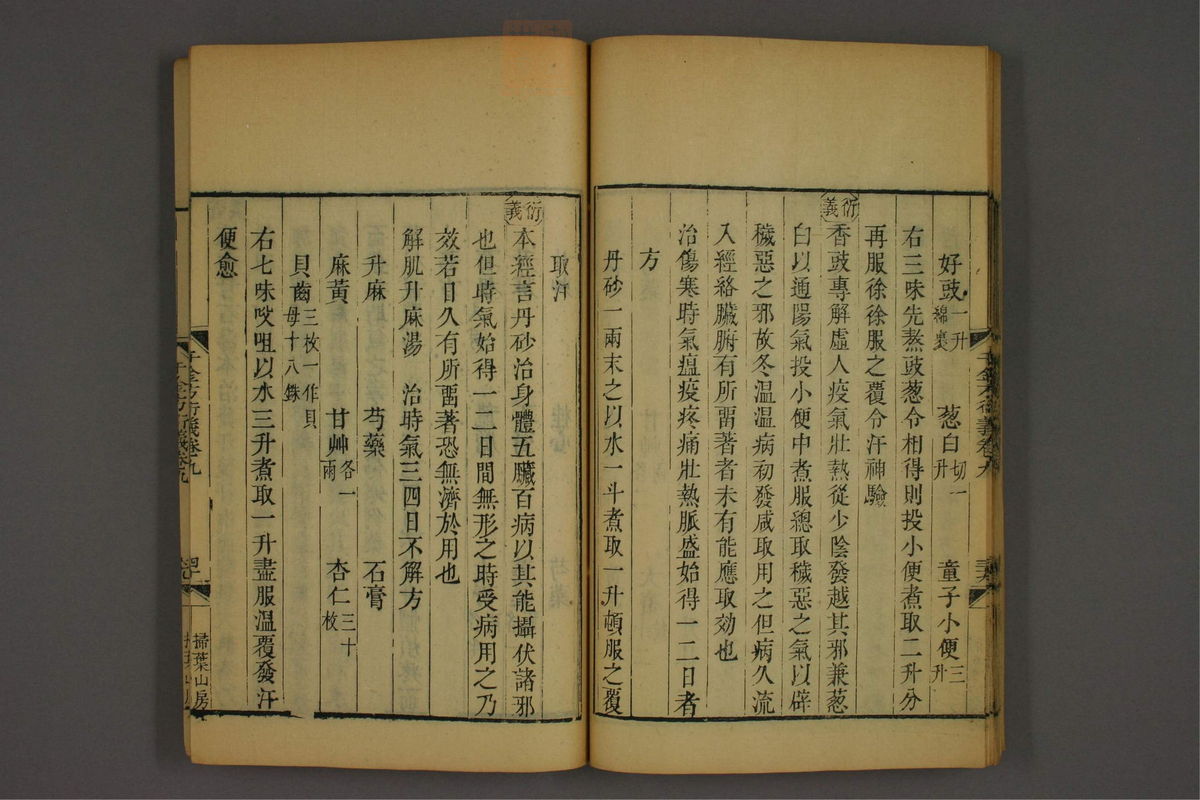 好豉一升綿裹　葱白切一升　童子小便三升
右三味先熬豉葱令相得則投小便煮取二升分
再服徐徐服之覆令汗神驗
衍義
香豉專解虛人疫氣壯熱從少陰發越其邪兼葱
白以通陽氣投小便中煮服總取穢惡之氣以辟
穢惡之邪故冬温温病初發咸取用之但病久流
入經絡臟腑有所畱著者未有能應取効也
治傷寒時氣瘟疫疼痛壯熱脈盛始得一二日者
方
丹砂一兩末之以水一斗煮取一升頓服之覆
取汗
衍義
本經言丹砂治身體五臟百病以其能攝伏諸邪
也但時氣始得一二日間無形之時受病用之乃
效若日久有所畱著恐無濟於用也
解肌升麻湯　治時氣三四日不解方
升麻　芍藥　石膏
麻黃　甘艸各一兩　杏仁三十枚
貝齒三枚一作貝母十八銖
右七味㕮咀以水三升煮取一升盡服温覆發汗
便愈
千金方衍義卷九
掃葉山房